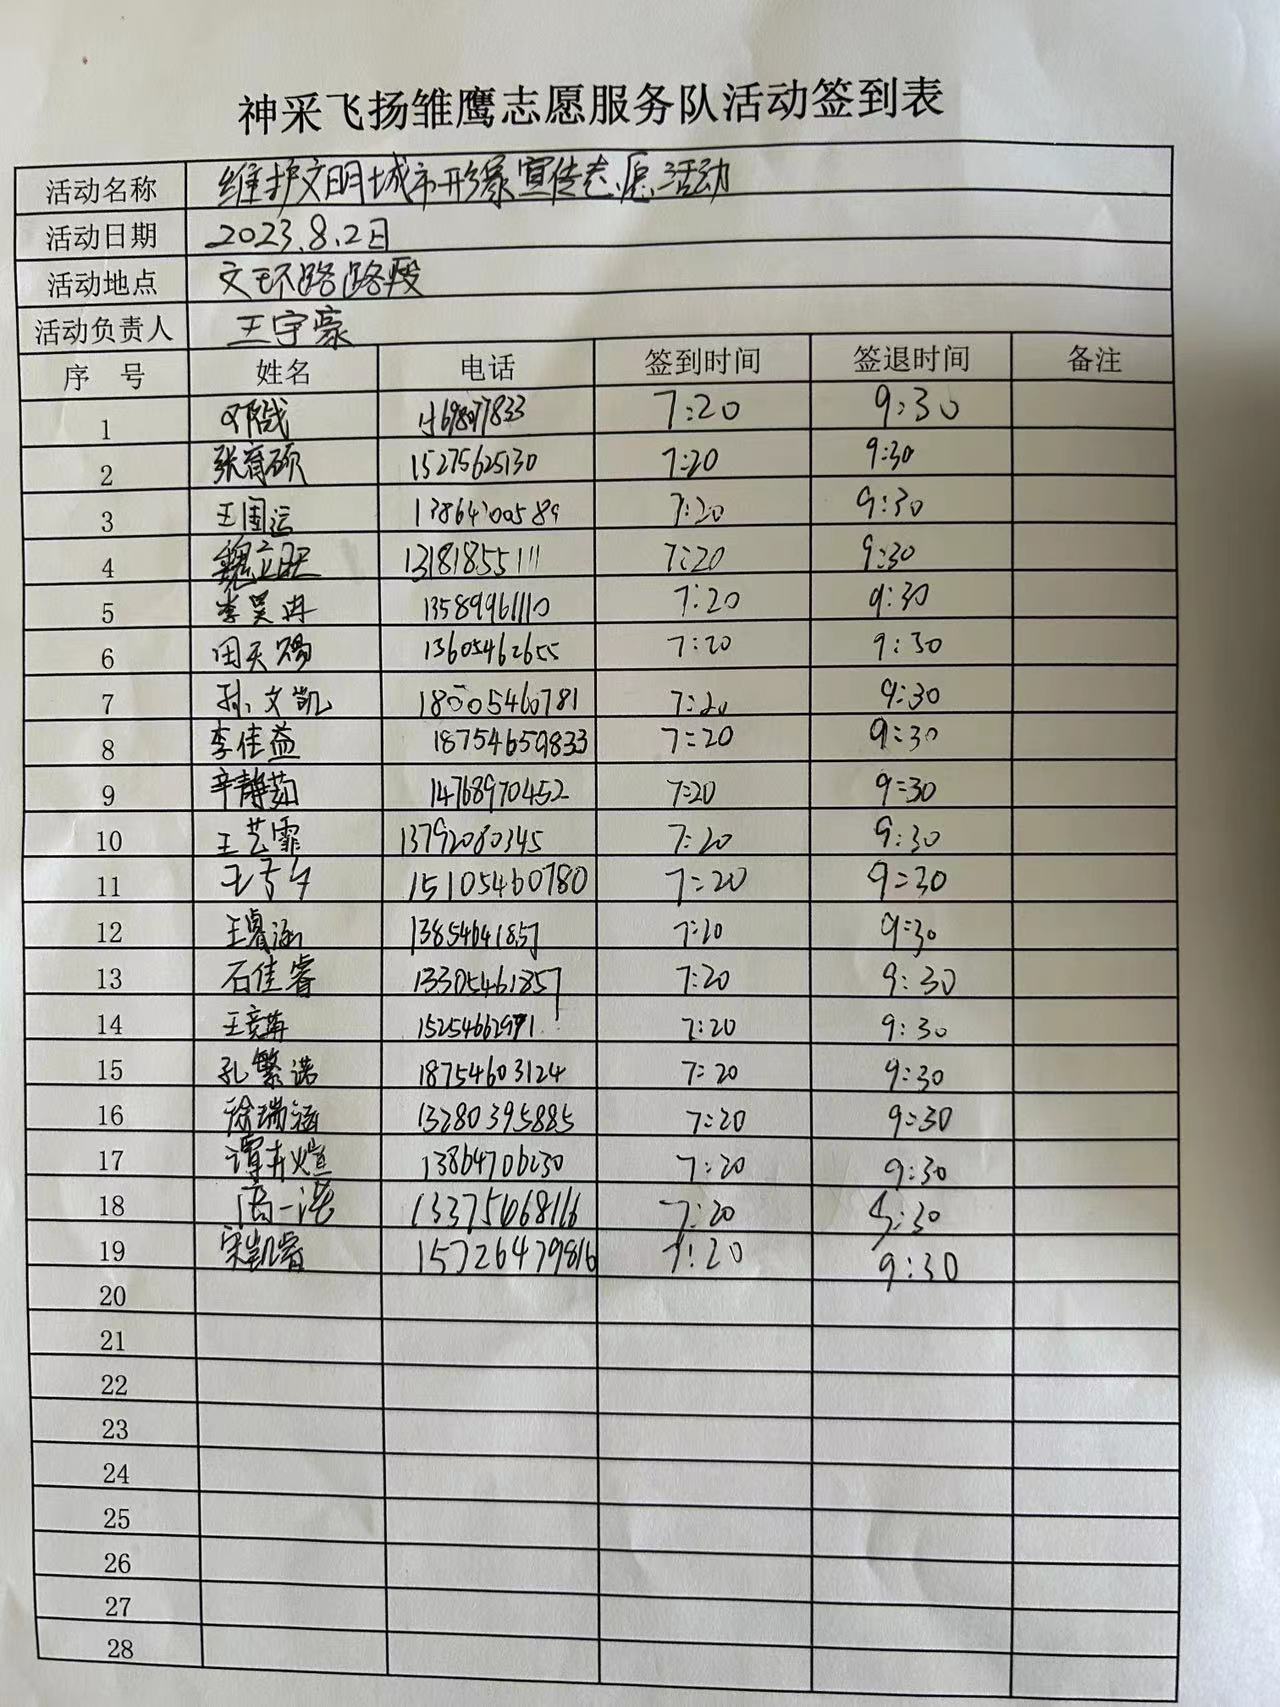 神采飞扬雏鹰志愿服务队活动签到表
活动名称 维护文明城市形象宣传志愿活动
活动日期 2023.8.2日
活动地点 文环路路段
活动负责人 王宇豪
序 号 姓名 电话 签到时间 签退时间 备注
1 7:20 9:30
2 张育硕 15275625130 7:20 9:30
3 王国运 13864700589 7:20 9:30
4 魏立旺 13181855111 7:20 9:30
5 李昊冉 13589961110 7:20 9:30
6 田天赐 13605462655 7:20 9:30
7 孙文凯 18005460781 7:20 9:30
8 李佳益 18754659833 7:20 9:30
9 辛静茹 14768970452 7:20 9:30
10 王艺霏 13792080345 7:20 9:30
11 15105460780 7:20 9:30
12 王睿涵 13854641857 7:20 9:30
13 石佳睿 13305461857 7:20 9:30
14 7:20 9:30
15 孔繁诺 18754603124 7:20 9:30
16 徐瑞涵 13280395885 7:20 9:30
17 13864706230 7:20 9:30
18 7:20 9:30
19 宋凯睿 15726479816 7:20 9:30
20
21
22
23
24
25
26
27
28